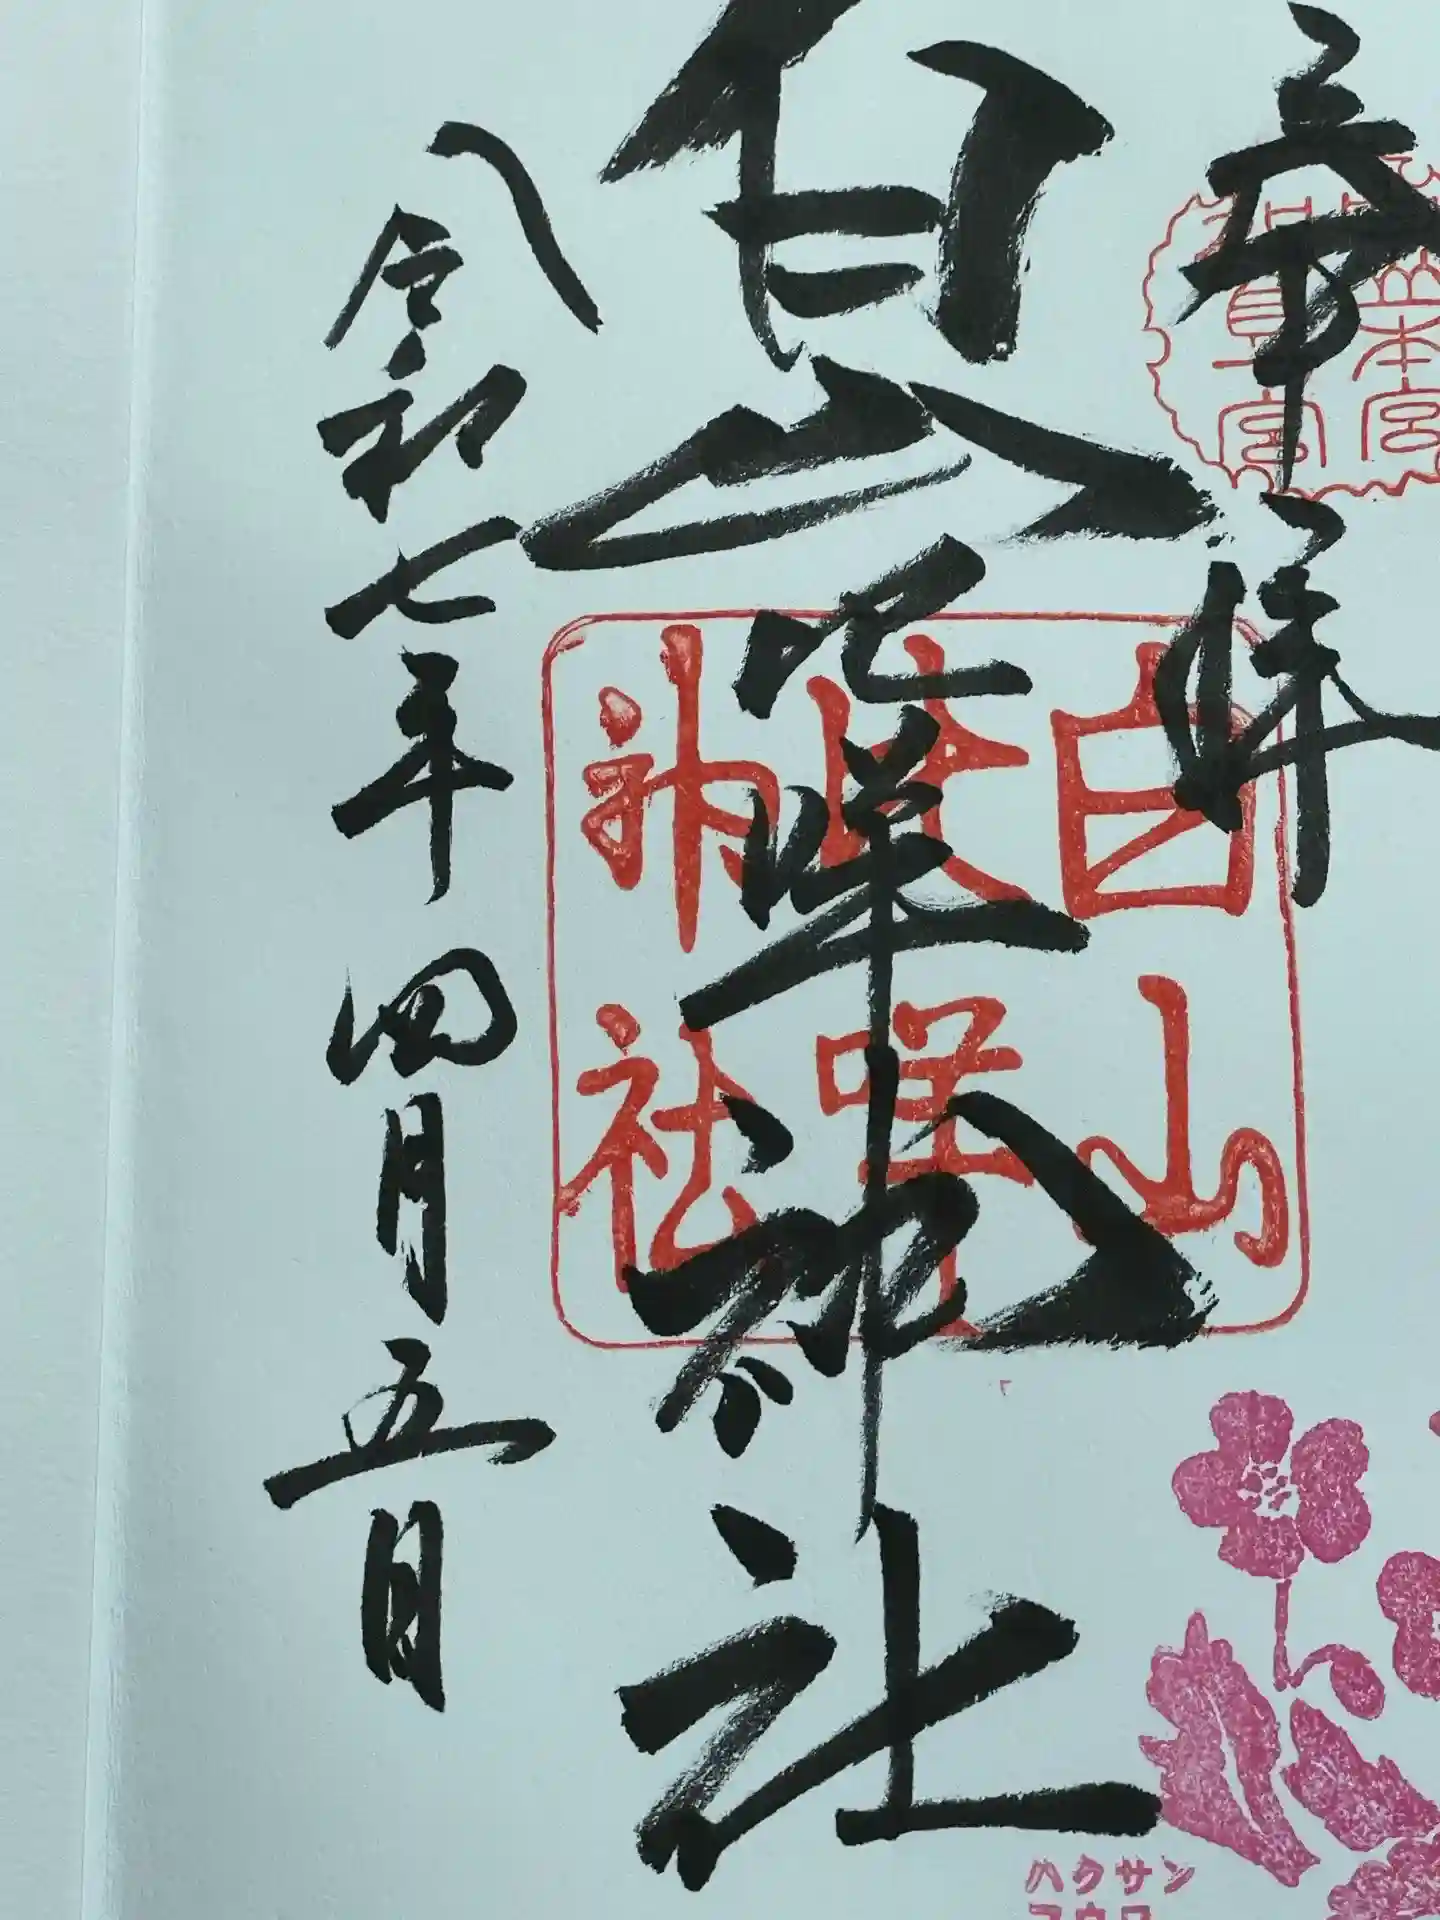 奉拝
白山比咩神社
令和七年四月五日
白山
比咩
神社
ハクサン
フウロ